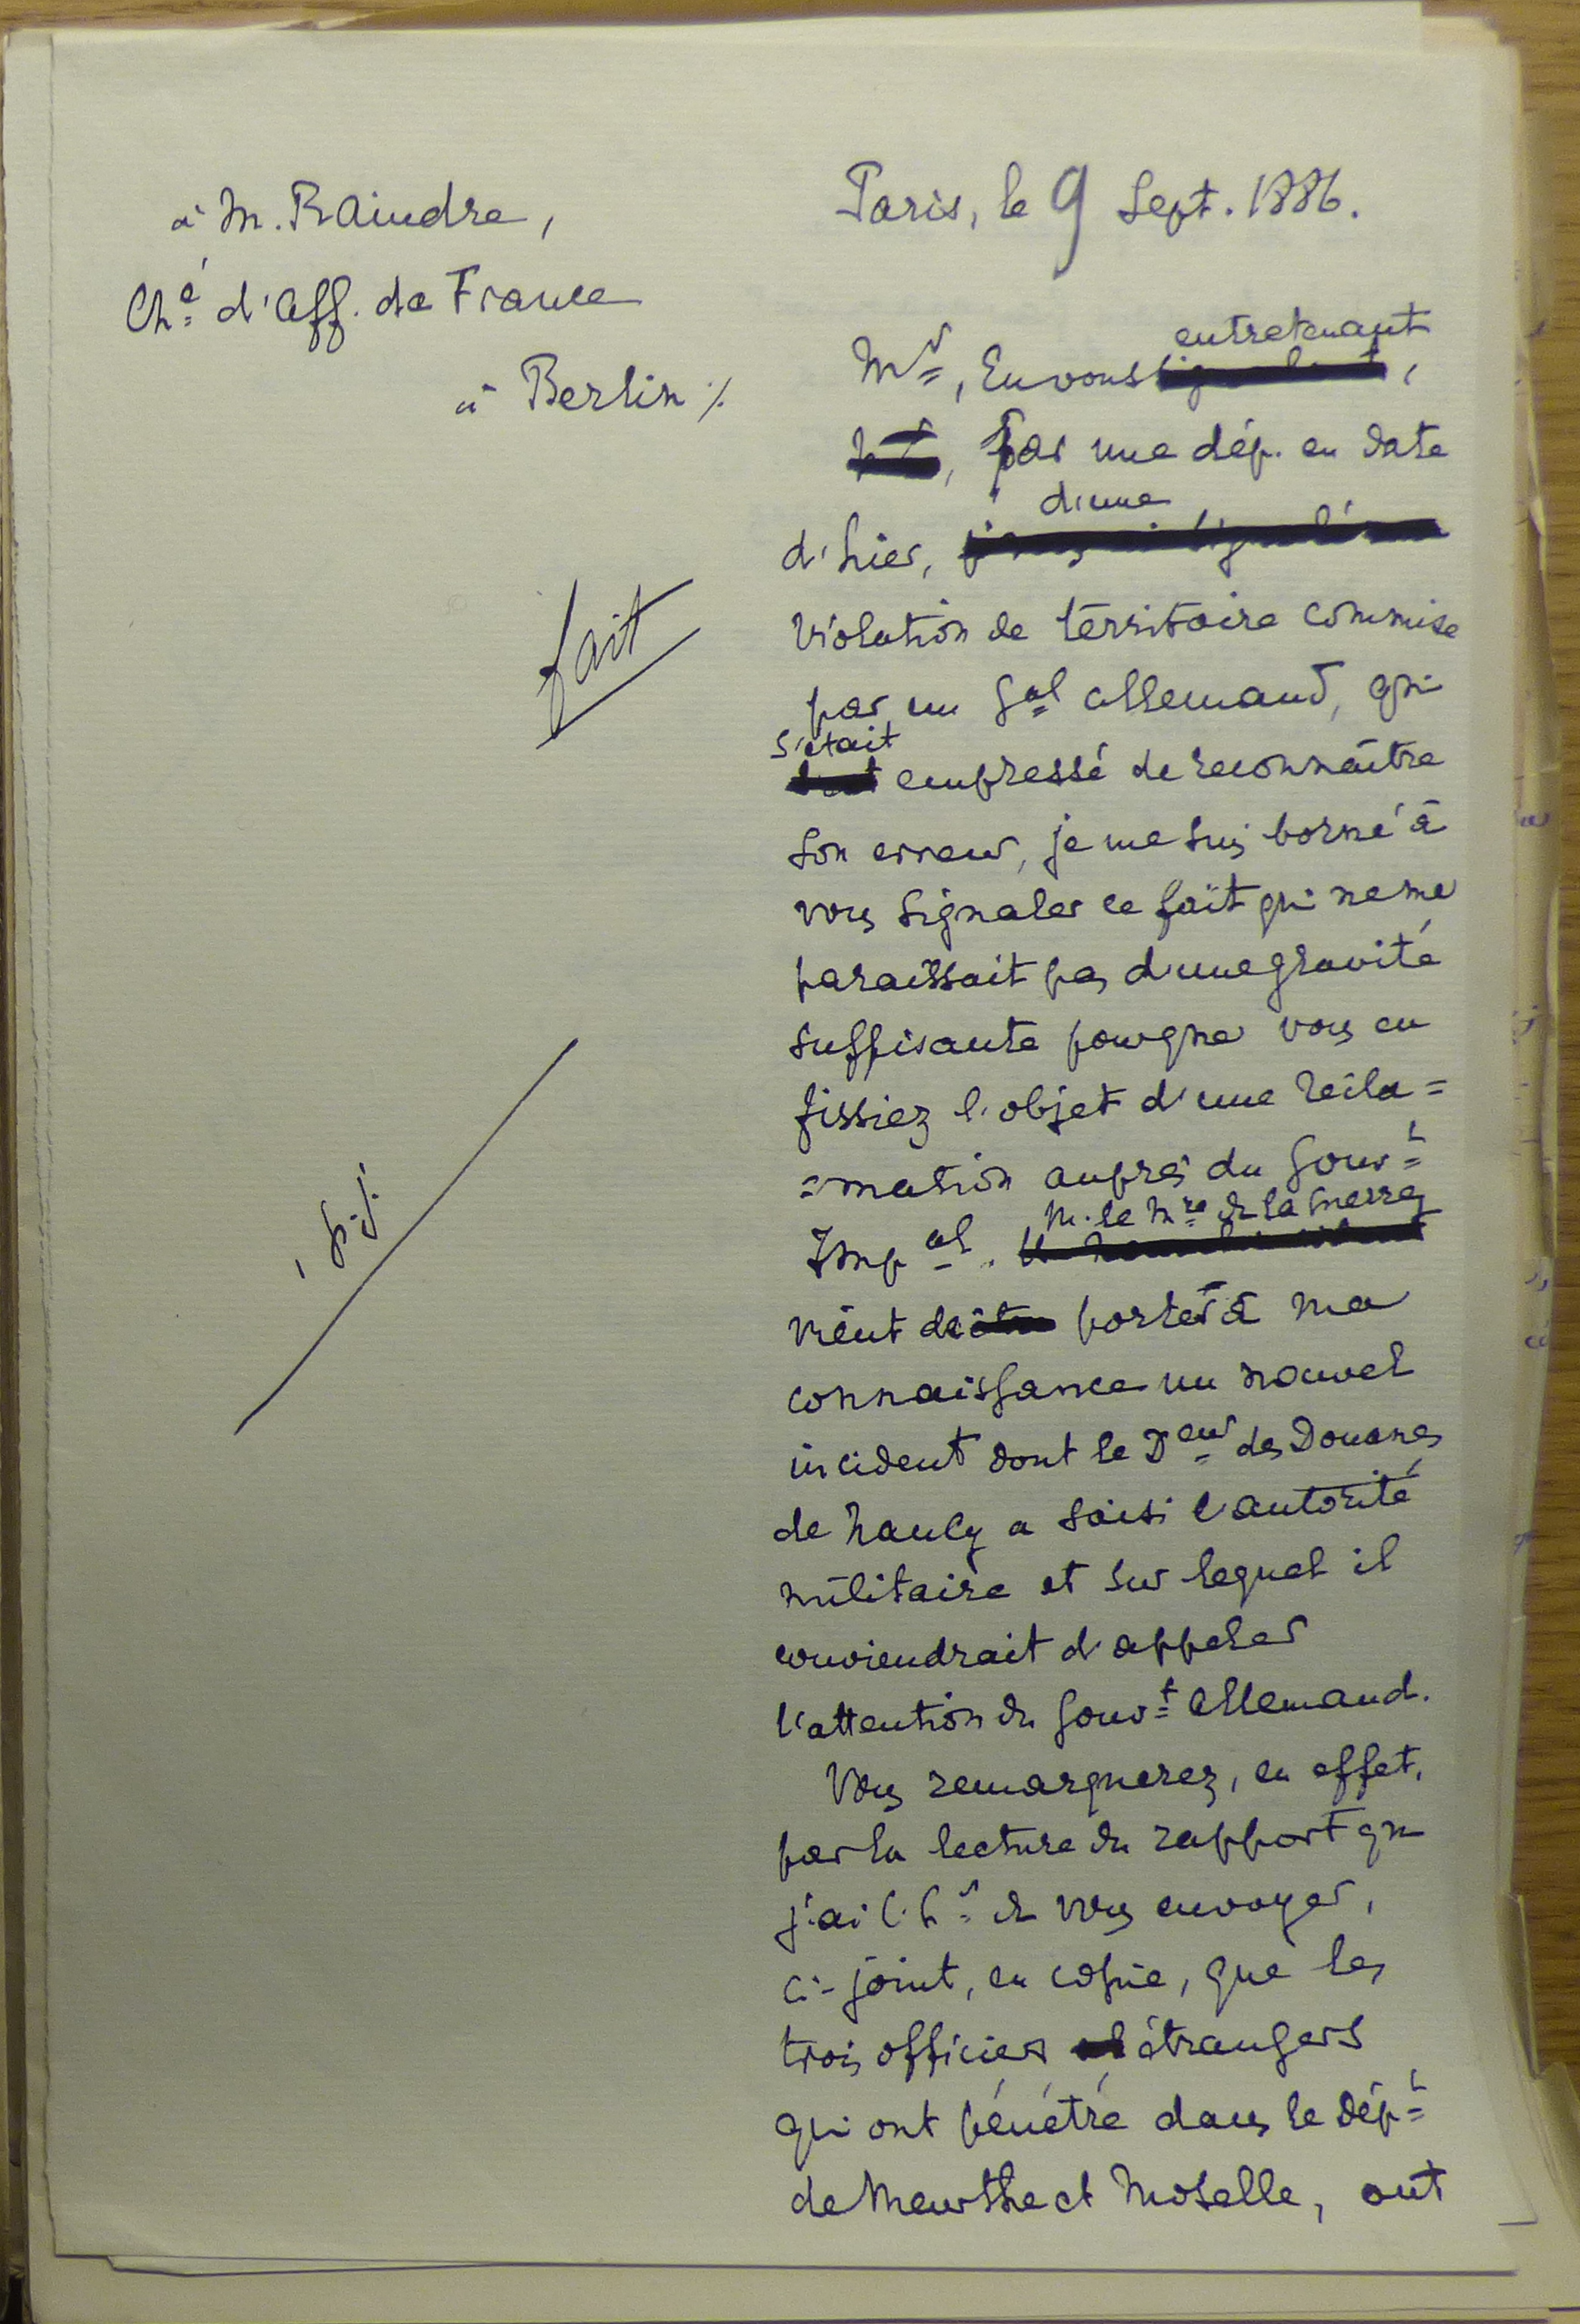 à M. Raindre,
Ché d'Aff. de France
à Berlin ./.
fait
1 p.j.
Paris, le 9 Sept. 1886.
entretenant
Mr, En vous ,
, par une dép. en date
d'une
d'hier,
violation de territoire commise
par un Gal allemand, qui
s'était
empressé de reconnaître
son erreur, je me suis borné à
vous signaler ce fait qui ne me
paraissait pas d'une gravité
suffisante pour que vous en
fissiez l'objet d'une récla=
=mation auprès du Gouvt
M. le Mre de la Guerre
Impal.
vient de porter à ma
connaissance un nouvel
incident dont le Deur des Douanes
de Nancy a saisi l'autorité
militaire et sur lequel il
conviendrait d'appeler
l'attention du Gouvt Allemand.
Vous remarquerez, en effet,
par la lecture du rapport que
j'ai l'hr de vous envoyer,
ci-joint, en copie, que les
trois officiers étrangers
qui ont pénétré dans le Dépt
de Meurthe et Moselle, ont